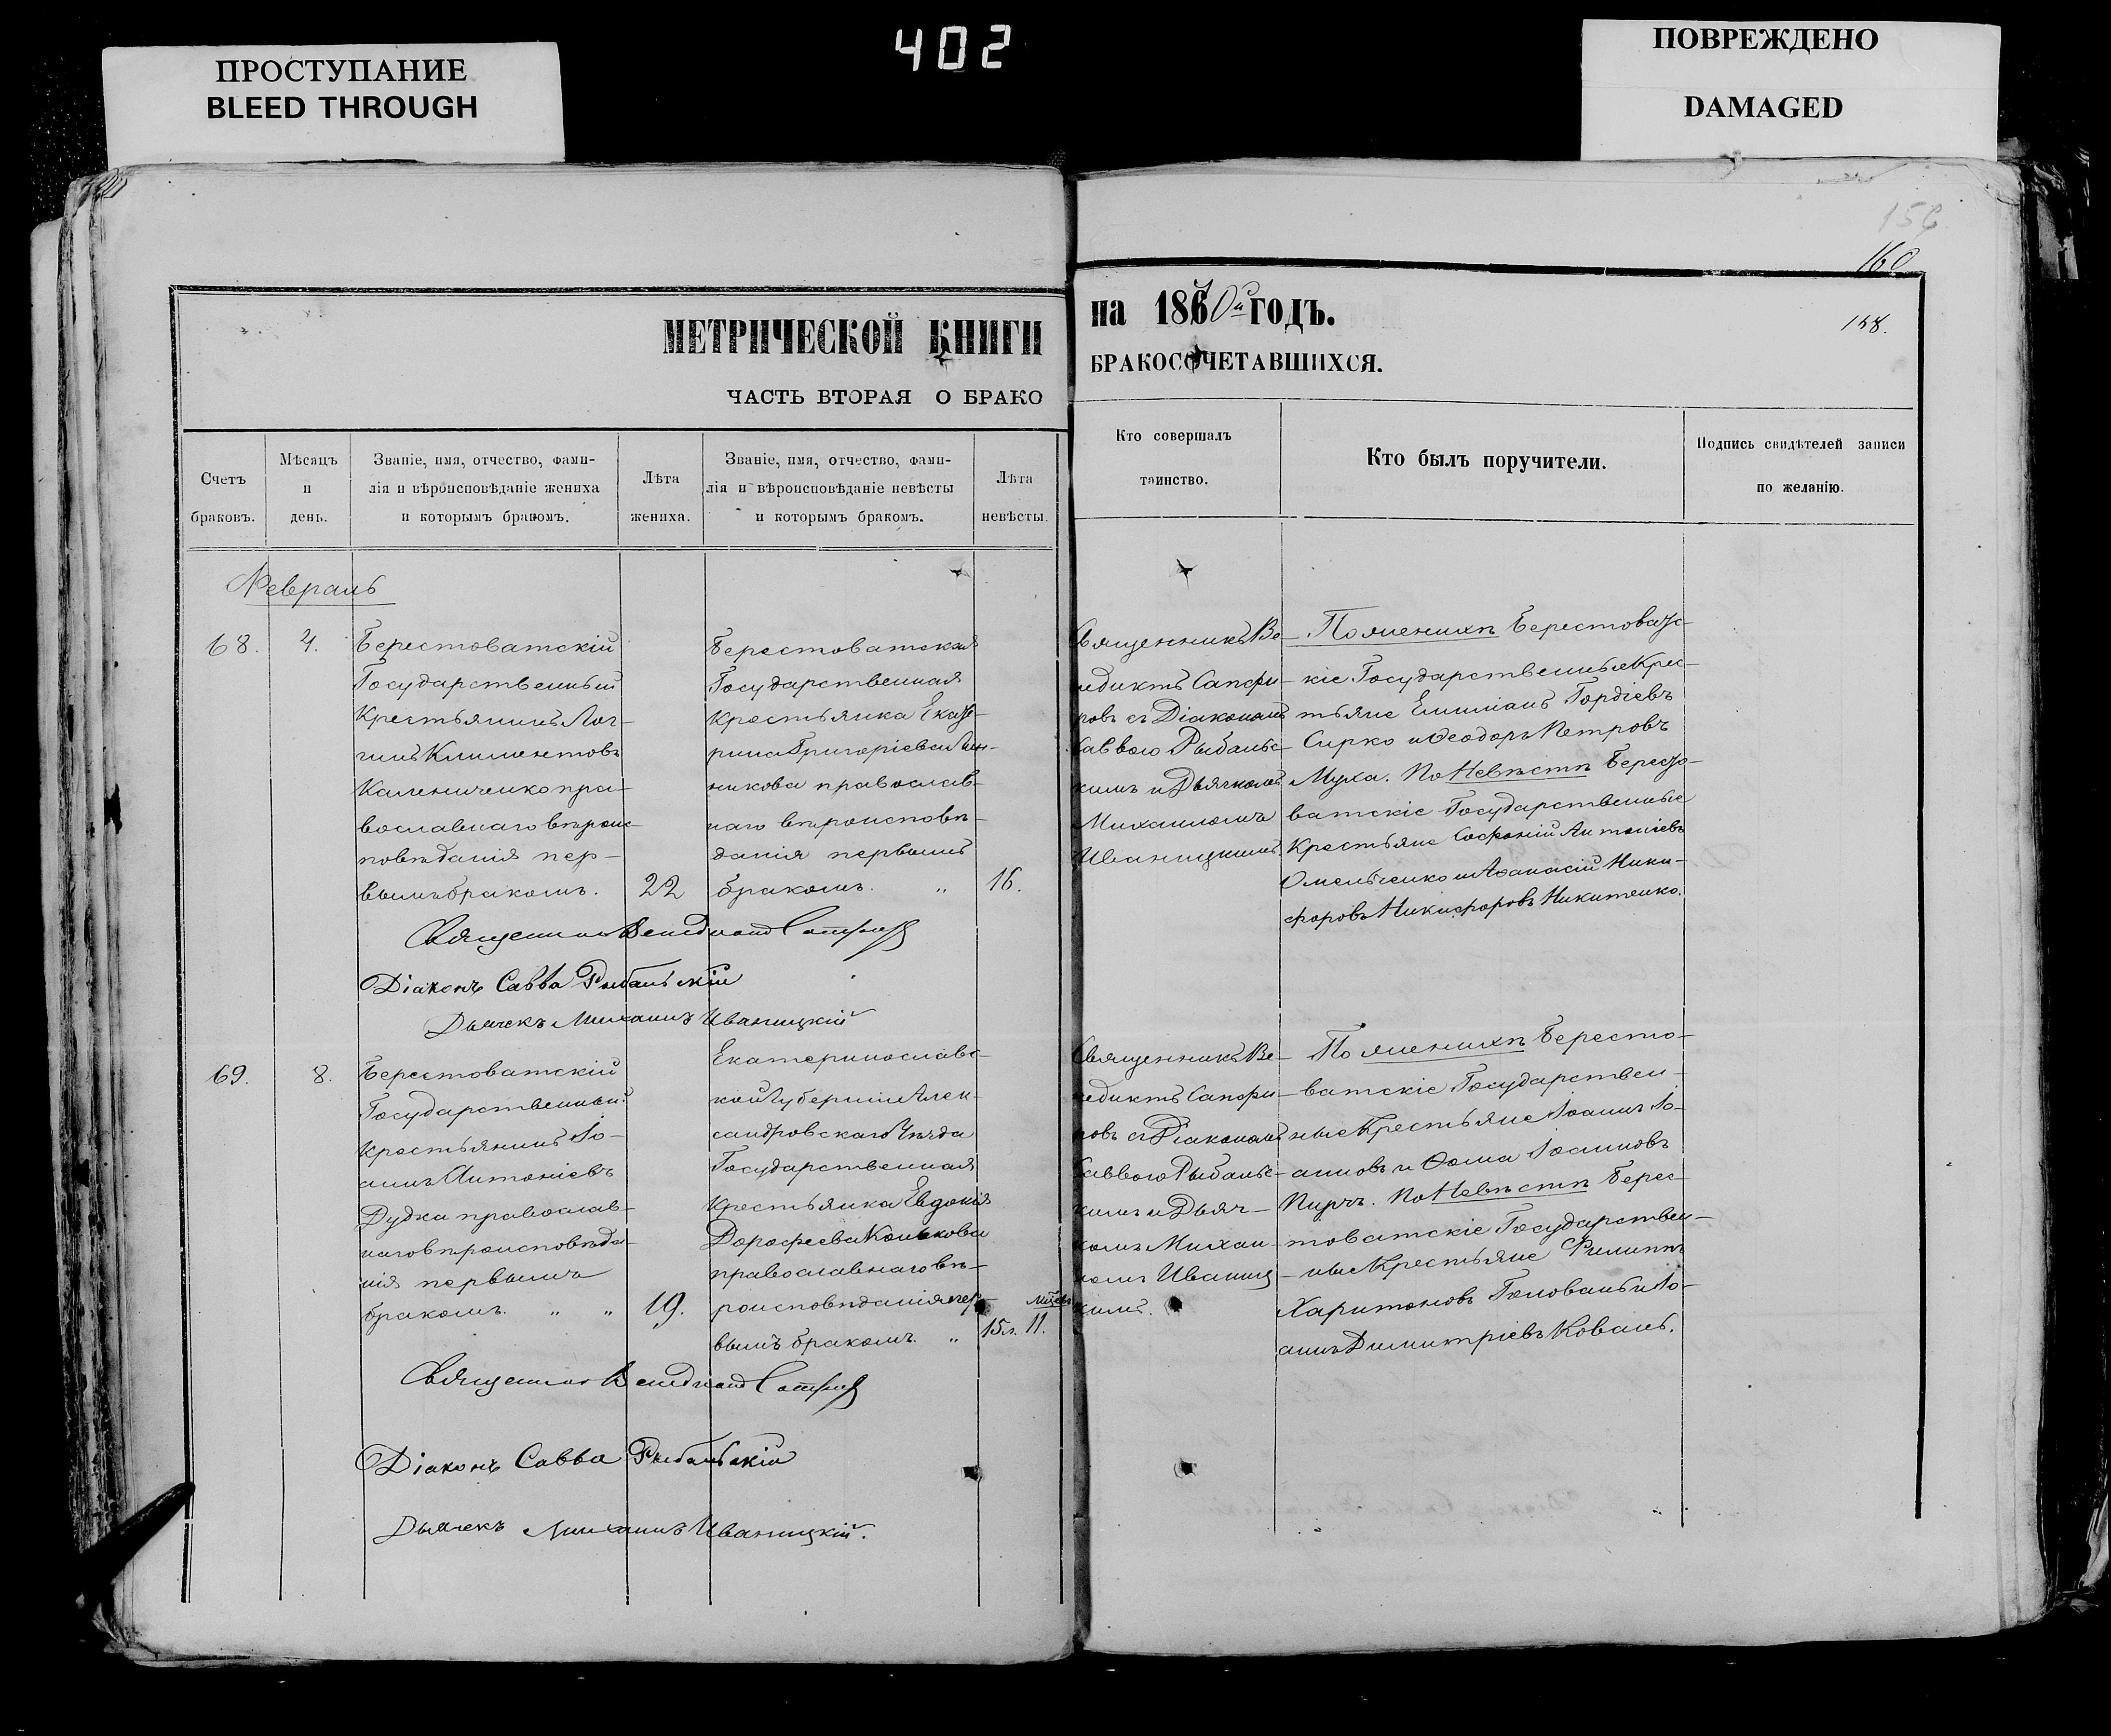 ПРОСТУПАНИЕ
BLEED THROUGH
402
ПОВРЕЖДЕНО
DAMAGED
160
158.
МЕТРИЧЕСКОЙ КНИГИ
ЧАСТЬ ВТОРАЯ О БРАКО
на 1870й ГОДЪ.
БРАКОСОЧЕТАВШИХСЯ.
Счетъ
браковъ.
Мѣсяцъ
и
день.
Званіе, имя, отчество, фами-
лія и вѣроисповѣданіе жениха
и которымъ бракомъ.
Лѣта
жениха.
Званіе, имя, отчество, фами-
лія и вѣроисповѣданіе невѣсты
и которымъ бракомъ.
Лѣта
невѣсты.
Кто совершалъ
таинство.
Кто былъ поручители.
Подпись свидѣтелей записи
по желанію.
Февраль
68.
4.
Берестоватскій
Государственный
Крестьянинъ Лог-
гинъ Климентовъ
Калениченко пра-
вославнаго вѣроис-
повѣданія пер-
вымъ бракомъ.
22
Берестоватская
Государственная
Крестьянка Екате-
рина Григоріева
никова православ-
наго вѣроисповѣ-
данія первымъ
бракомъ. „
16.
Священникъ Ве-
недиктъ Сапфи-
ровъ съ Діакономъ
Саввою Рыбальс-
кимъ и Дьячкомъ
Михаиломъ
Иваницкимъ.
По женихѣ Берестоватс-
кіе Государственные Крес-
тьяне Емиліанъ Гордіевъ
Сирко и Ѳеодоръ Петровъ
Муха. По Невѣстѣ Бересто-
ватскіе Государственные
Крестьяне Софоній Антоніевъ
Омельченко и Аѳанасій Ники-
форовъ Никифоровъ Никитенко.
Священникъ Венедиктъ Сапфировъ
Діаконъ Савва Рыбальскій
Дьячекъ Михаилъ Иваницкій
69.
8.
Берестоватскій
Государственный
Крестьянинъ Іо-
аннъ Антоніевъ
Дудка православ-
наго вѣроисповѣда-
нія первымъ
бракомъ. „ „
19.
Екатеринославс-
кой Губерніи Алек-
сандровскаго Уѣзда
Государственная
Крестьянка Евдокія
Дорофеева Конькова
православнаго вѣ-
роисповѣданія пер-
вымъ бракомъ. „
15 л. 11.
Священникъ Ве-
недиктъ Сапфи-
ровъ съ Діакономъ
Саввою Рыбальс-
кимъ и Дьяч-
комъ Михаи-
ломъ Иваниц-
кимъ.
По женихѣ Бересто-
ватскіе Государствен-
ные Крестьяне Іоаннъ Іо-
анновъ и Ѳома Іоанновъ
Пурчъ. По Невѣстѣ Берес-
товатскіе Государствен-
ные Крестьяне Филиппъ
Харитоновъ Головань и Іо-
аннъ Димитріевъ Коваль.
Священникъ Венедиктъ Сапфировъ
Діаконъ Савва Рыбальскій
Дьячекъ Михаилъ Иваницкій.